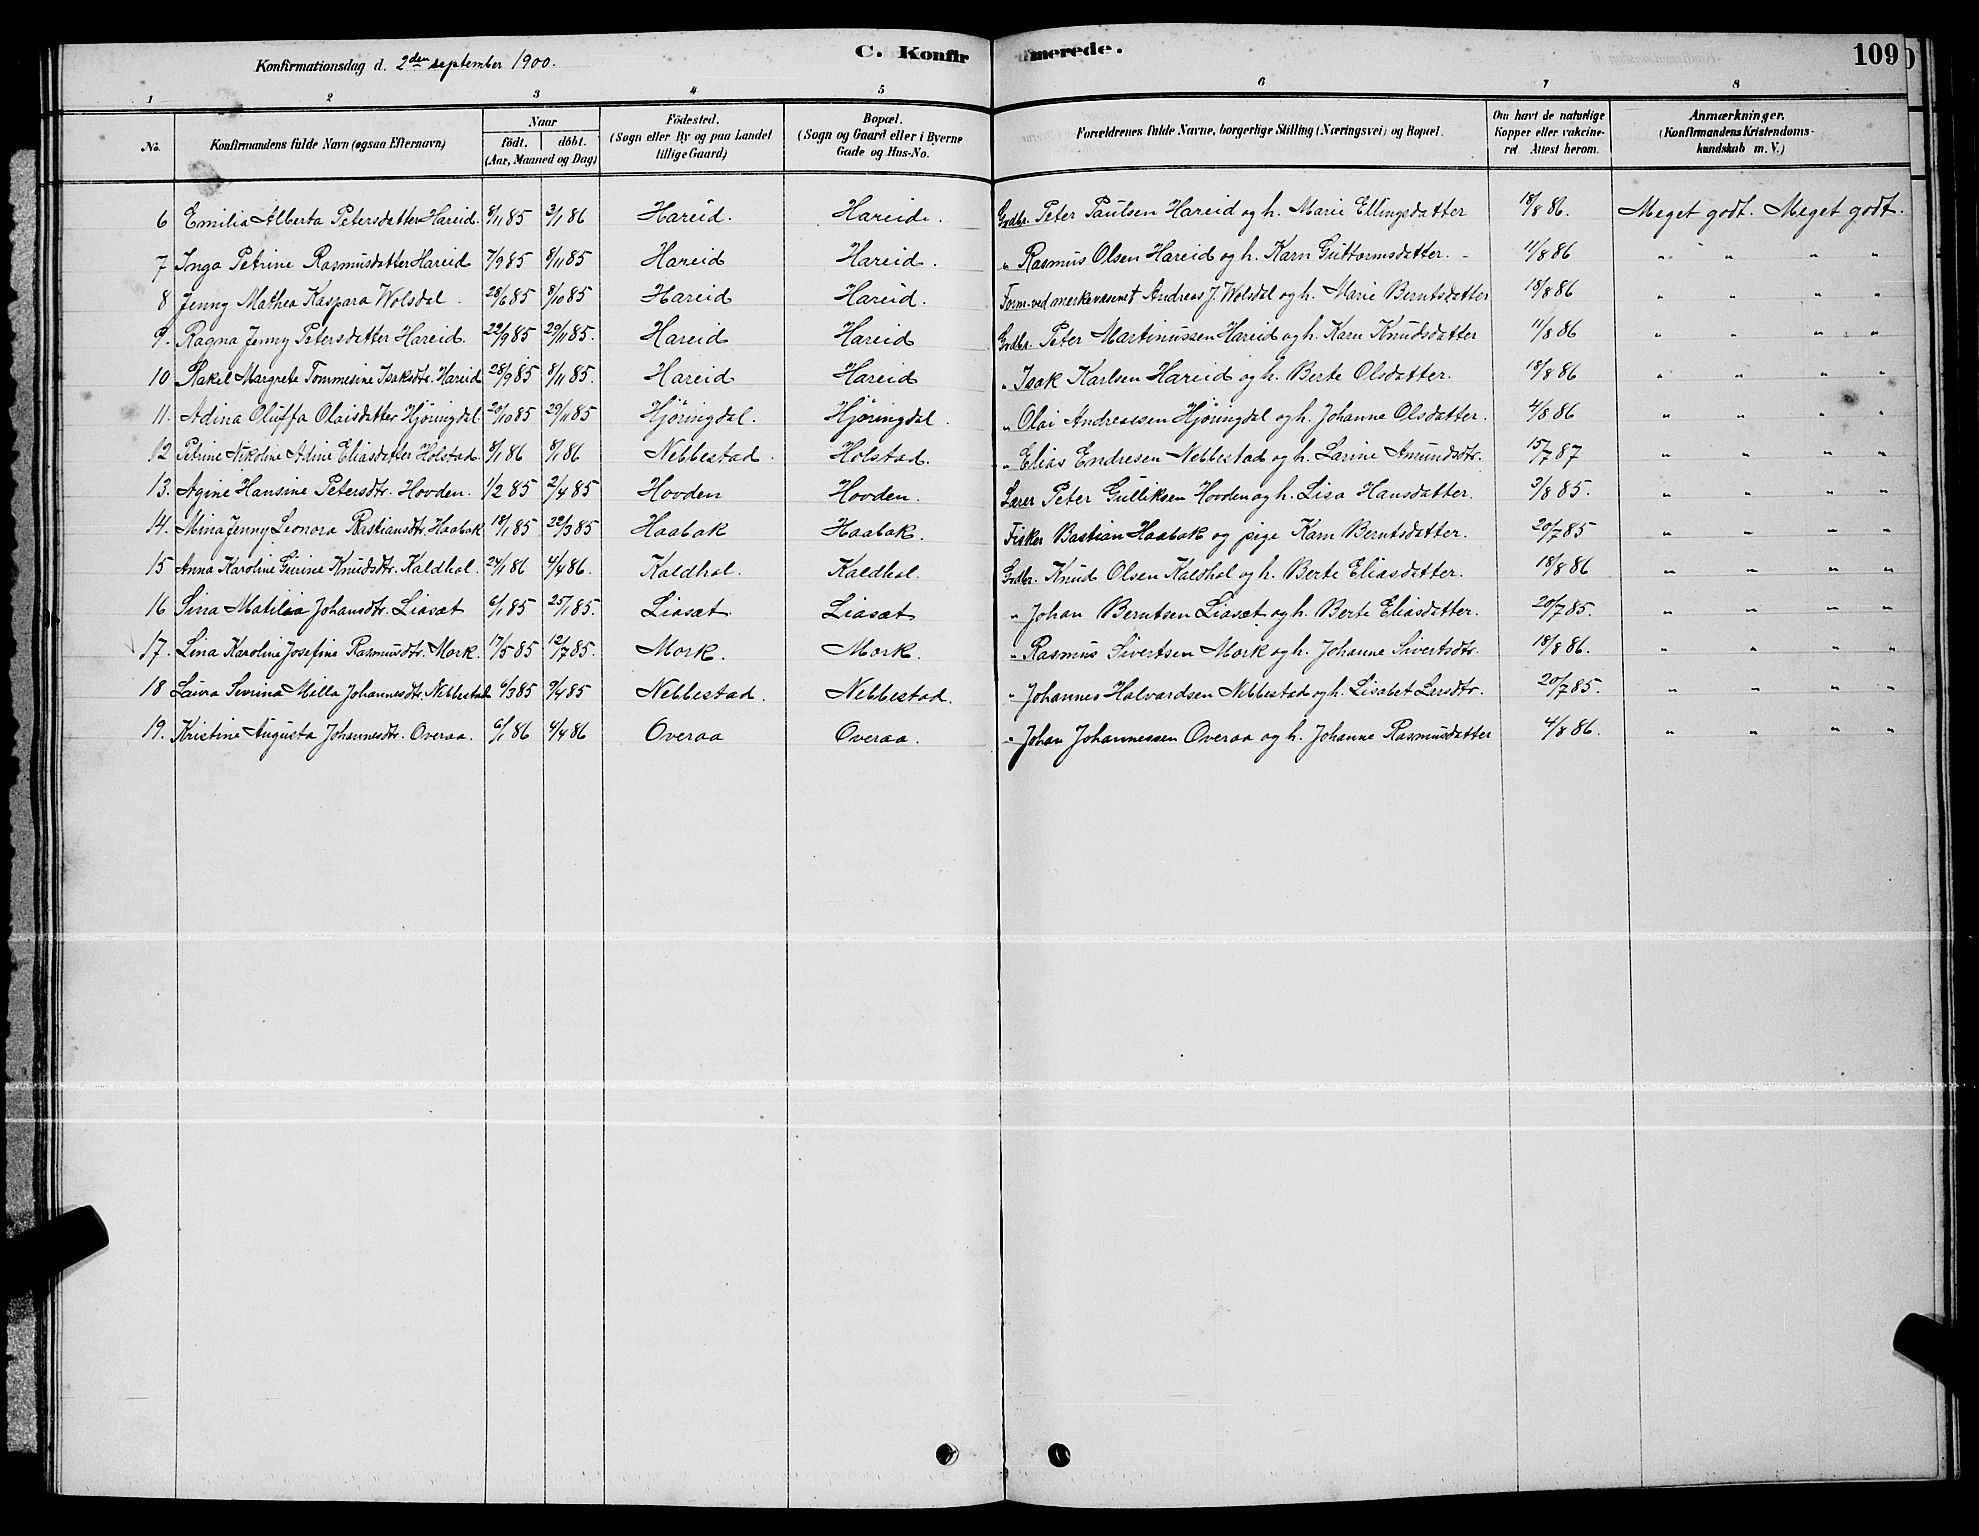 Konfirmationsdag d. 2den september 1900.
C. Konfirmerede.
109
1 2 3 4 5 6 7 8
No. Konfirmandens fulde Navn (ogsaa Efternavn) Naar födt. döbt. (Aar, Maaned og Dag) Födested. (Sogn eller By og paa Landet tillige Gaard) Bopæl. (Sogn og Gaard eller i Byerne Gade og Hus-No. Forældrenes fulde Navne, borgerlige Stilling (Næringsvei) og Bopæl. Om havt de naturlige Kopper eller vakcineret. Attest herom. Anmærkninger. (Konfirmandens Kristendomskundskab m. V.)
6 Emilia Alberta Petersdatter Hareid. 8/11 85 3/1 86 Hareid. Hareid. Grdbr. Peter Paulsen Hareid og h. Marie Ellingsdatter 18/8 86. Meget godt. Meget godt.
7 Inga Petrine Rasmusdatter Hareid 7/9 85 8/11 85 Hareid Hareid. " Rasmus Olsen Hareid og h. Karn Guttormsdatter. 11/8 86 " " " "
8 Jenny Mathea Kaspara Wolsdal. 28/6 85 8/10 85 Hareid Hareid. Form. ved merkevæsenet Andreas J. Wolsdal og h. Marie Berntsdatter 18/8 86 " " " "
9. Ragna Jenny Petersdatter Hareid. 22/9 85 29/11 85. Hareid Hareid Grdbr. Peter Martinussen Hareid og h. Karn Knudsdatter 11/8 86 " " " "
10 Rakel Margrete Tommesine Isaksdtr. Hareid 28/9 85 8/11 85. Hareid Hareid " Isak Karlsen Hareid og h. Berte Olsdatter. 18/8 86 " " " "
11. Adina Oluffa Olaisdatter Hjöringdal. 20/10 85 29/11 85 Hjöringdal. Hjöringdal. " Olai Andreassen Hjöringdal og h. Johanne Olsdatter. 4/8 86 " " " "
12 Petrine Nikoline Adine Eliasdatter Holstad. 8/1 86 8/1 86 Nebbestad. Holstad. " Elias Endresen Nebbestad og h. Larine Amundsdtr. 15/7 87 " " " "
13. Agine Hansine Petersdtr. Hovden. 1/2 85 2/4 85 Hovden Hovden. Lærer Peter Gulliksen Hovden og h. Lisa Hansdatter. 3/8 85. " " " "
14. Mina Jenny Leonora Bastiansdtr. Haabak 18/1 85 22/3 85 Haabak Haabak. Fisker Bastian Haabak og pige Karn Berntsdatter. 20/7 85 " " " "
15 Anna Karoline Gurine Knudsdtr. Kaldhol. 24/1 86 4/4 86. Kaldhol. Kaldhol. Grdbr. Knud Olsen Kaldhol og h. Berte Eliasdatter. 18/8 86 " " " "
16 Sina Matilia Johansdtr. Liasæt 6/1 85 25/1 85. Liasæt Liasæt " Johan Berntsen Liasæt og h. Berte Eliasdatter. 20/7 85. " " " "
17. Lina Karoline Josefine Rasmusdtr. Mork. 17/5 85 12/7 85. Mork. Mork. " Rasmus Sivertsen Mork og h. Johanne Sivertsdtr. 18/8 86. " " " "
18 Laura Severina Milla Johannesdtr. Nebbestad 6/3 85 9/4 85 Nebbestad. Nebbestad. " Johannes Halvardsen Nebbestad og h. Lisabet Larsdtr. 20/7 85. " " " "
19. Kristine Augusta Johannesdtr. Overaa. 6/1 86 4/4 86 Overaa Overaa. " Johan Johannessen Overaa og h. Johanne Rasmusdatter 4/8 86. " " " "